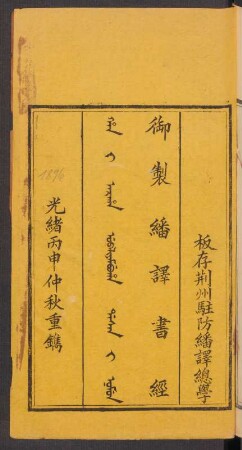 板存荆州駐防繙譯總學
御製繙譯書經
ᡥᠠᠨ ᡳ ᠠᡵᠠᡥᠠ ᡠᠪᠠᠯᡳᠶᠠᠮᠪᡠᡥᠠ ᡩᠠᠰᠠᠨ ᡳ ᠨᠣᠮᡠᠨ
1896
光緒丙申仲秋重鐫